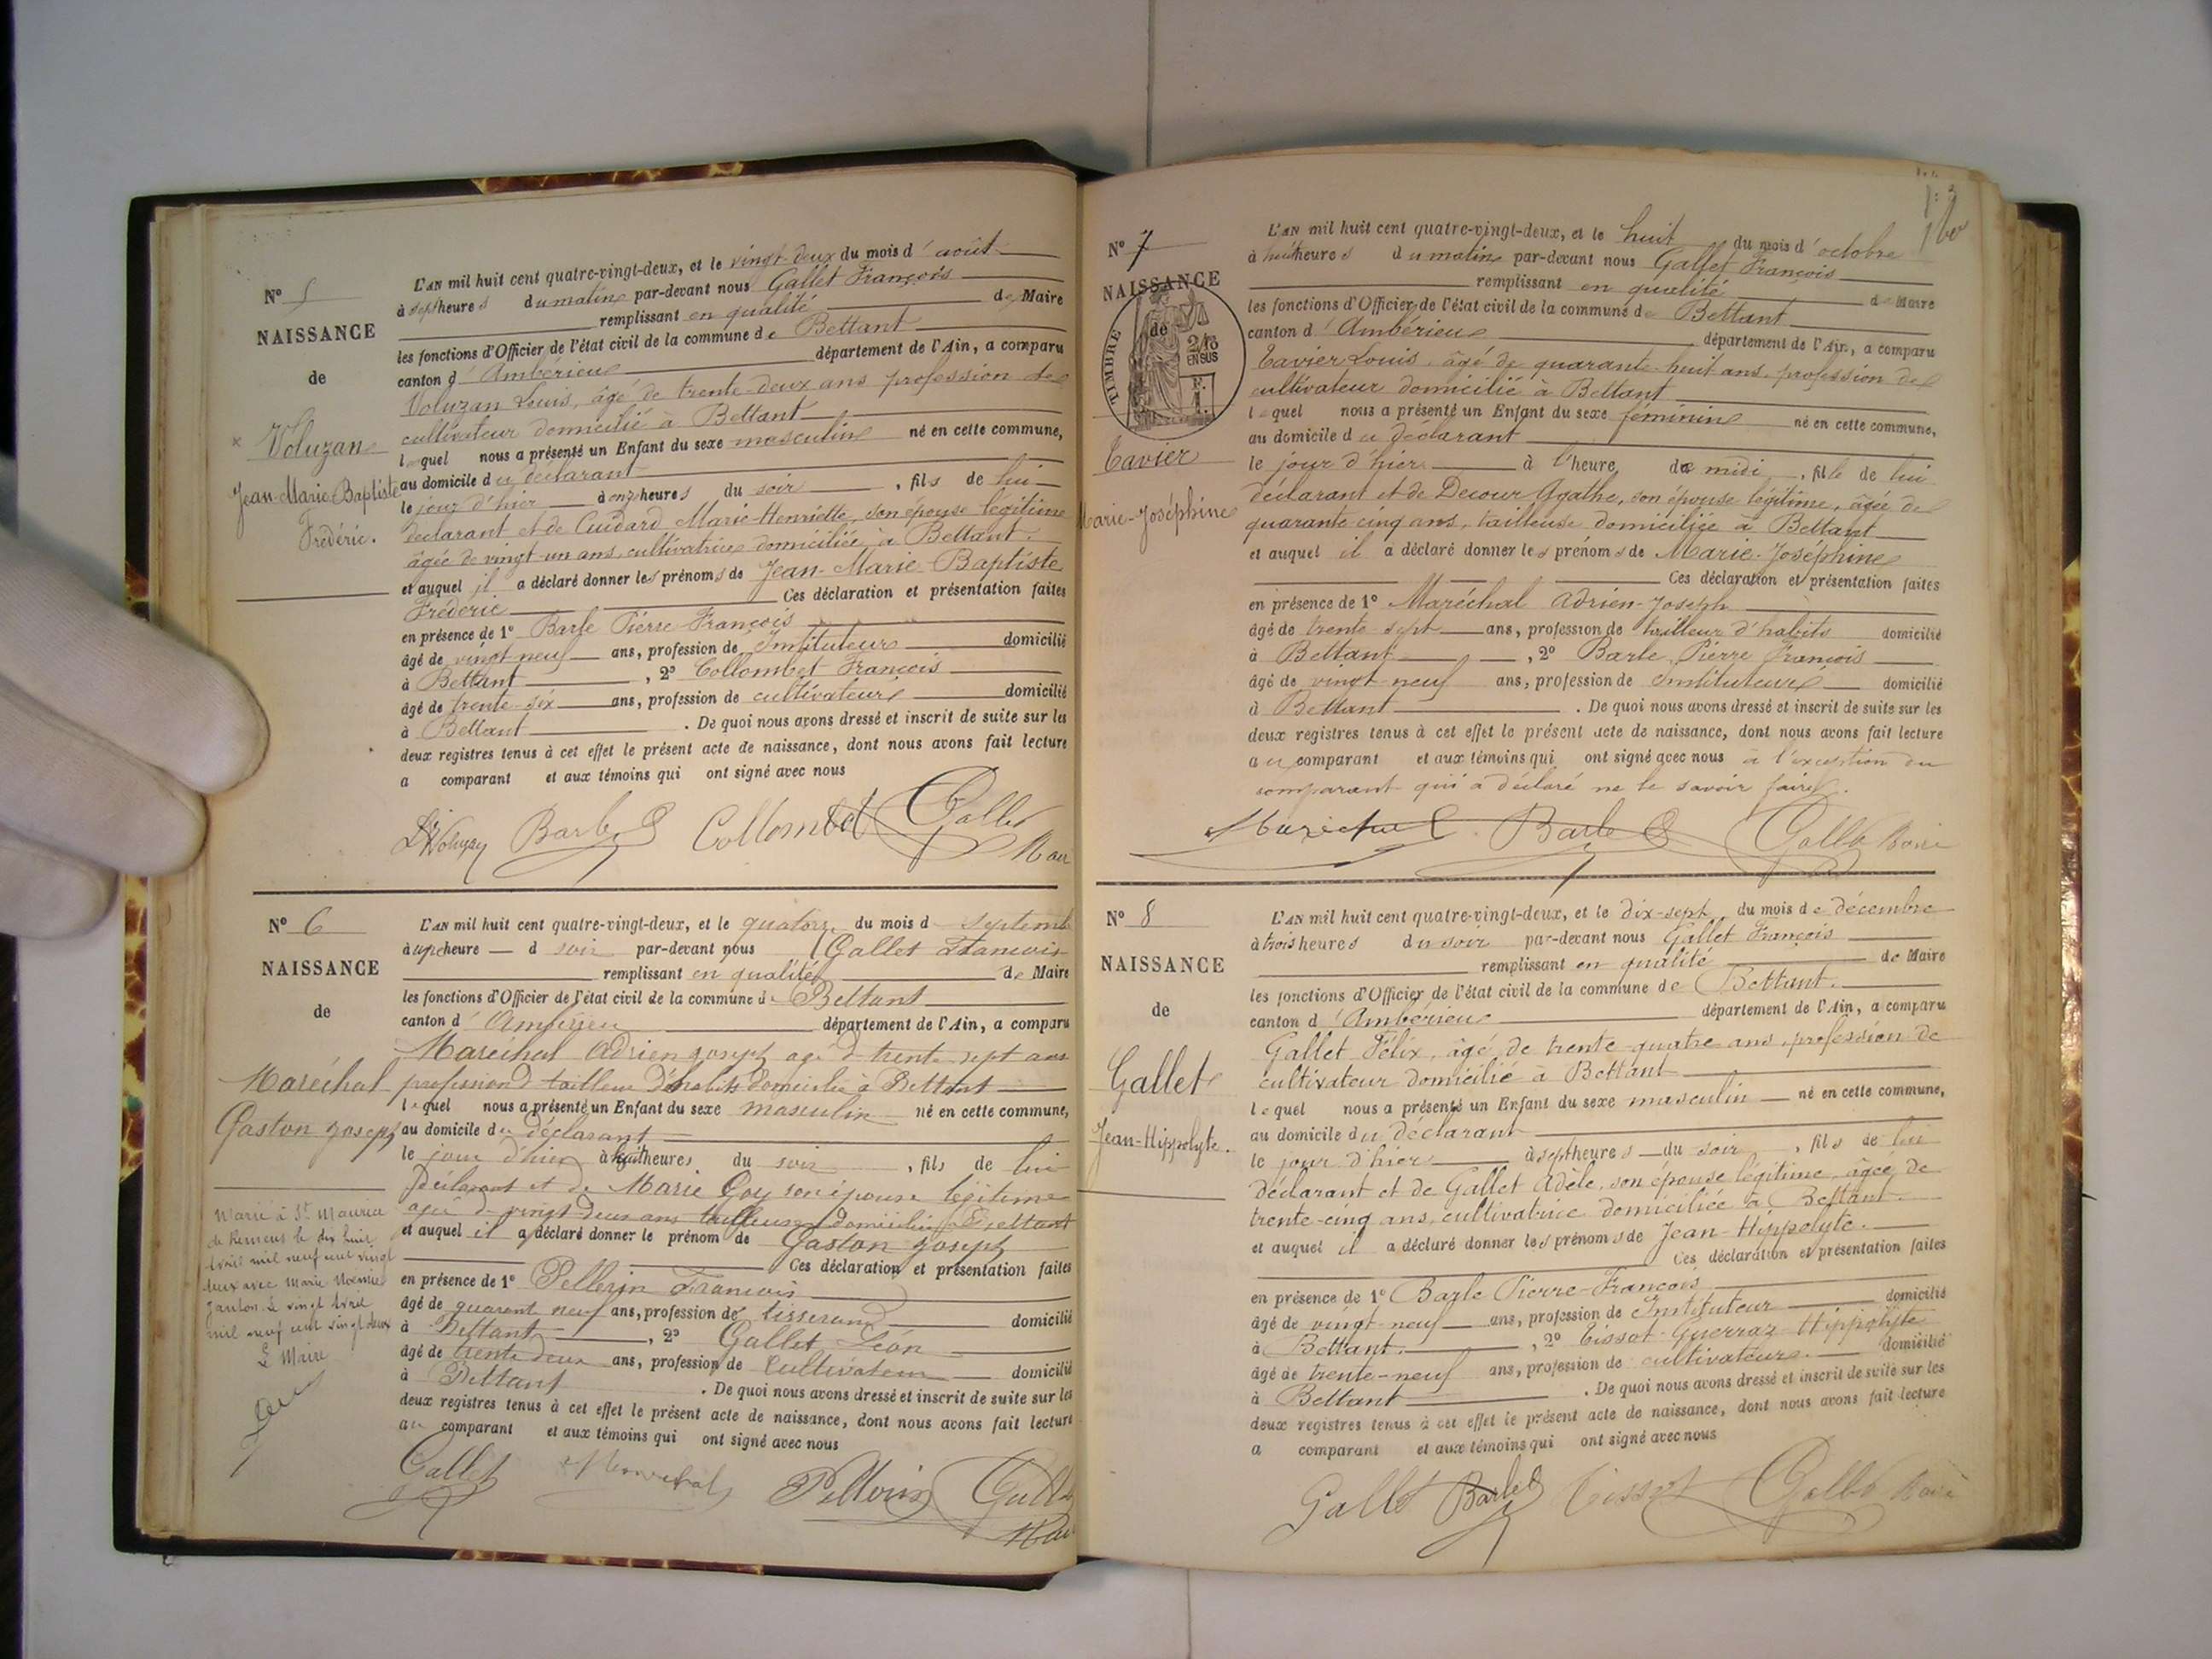 N° 5
NAISSANCE
de
Voluzan
Jean-Marie-Baptiste
Frédéric.
L'AN mil huit cent quatre-vingt-deux, et le vingt-deux du mois d'août
à sept heures du matin par-devant nous Gallet François
remplissant en qualité de Maire
les fonctions d'Officier de l'état civil de la commune de Bettant
canton d'Ambérieu département de l'Ain, a comparu
Voluzan Louis, âgé de trente-deux ans profession de
cultivateur domicilié à Bettant
lequel nous a présenté un Enfant du sexe masculin né en cette commune,
au domicile du déclarant
le jour d'hier à onze heures du soir, fils de lui
déclarant et de Cuidard Marie-Henriette, son épouse légitime
âgée de vingt-un ans, cultivatrice domiciliée à Bettant.
et auquel il a déclaré donner les prénoms de Jean-Marie-Baptiste
Frédéric Ces déclaration et présentation faites
en présence de 1° Barle Pierre François
âgé de vingt-neuf ans, profession de Instituteur domicilié
à Bettant, 2° Collombet François
âgé de trente-six ans, profession de cultivateur domicilié
à Bettant. De quoi nous avons dressé et inscrit de suite sur les
deux registres tenus à cet effet le présent acte de naissance, dont nous avons fait lecture
a comparant et aux témoins qui ont signé avec nous
Barle Collombet Gallet
N° 6
NAISSANCE
de
Maréchal
Gaston Joseph
Marié à St Maurice
de Remens le dix huit
Avril mil neuf cent vingt
deux avec Marie Noémie
Janton. Le vingt Avril
mil neuf cent vingt deux
Le Maire
L'AN mil huit cent quatre-vingt-deux, et le quatorze du mois d septembre
à une heure d soir par-devant nous Gallet Francois
remplissant en qualité de Maire
les fonctions d'Officier de l'état civil de la commune de Bettant
canton d'Ambérieu département de l'Ain, a comparu
Maréchal Adrien Joseph agé d trente sept ans
profession d tailleur d'habits domicilié à Bettant
lequel nous a présenté un Enfant du sexe masculin né en cette commune,
au domicile du déclarant
le jour d'hier à huit heures du soir, fils de lui
déclarant et de Marie Goy son épouse légitime
agée d vingt deux ans tailleuse domiciliée à Bettant
et auquel il a déclaré donner le prénom de Gaston Joseph
Ces déclaration et présentation faites
en présence de 1° Pellerin Francois
âgé de quarant neuf ans, profession de tisserand domicilié
à Bettant, 2° Gallet Léon
âgé de trente deux ans, profession de Cultivateur domicilié
à Bettant. De quoi nous avons dressé et inscrit de suite sur les
deux registres tenus à cet effet le présent acte de naissance, dont nous avons fait lecture
au comparant et aux témoins qui ont signé avec nous
Gallet Marechal Pellerin
N° 7
NAISSANCE
de
TIMBRE
2/10
EN SUS
Tavier
Marie-Joséphine
L'AN mil huit cent quatre-vingt-deux, et le huit du mois d'octobre
à huit heures du matin par-devant nous Gallet François
remplissant en qualité de Maire
les fonctions d'Officier de l'état civil de la commune de Bettant
canton d'Ambérieu département de l'Ain, a comparu
Tavier Louis, âgé de quarante-huit ans profession de
cultivateur domicilié à Bettant
lequel nous a présenté un Enfant du sexe féminin né en cette commune,
au domicile du déclarant
le jour d'hier à l'heure de midi, fille de lui
déclarant et de Decour Agathe, son épouse légitime, âgée de
quarante-cinq ans, tailleuse domiciliée à Bettant
et auquel il a déclaré donner les prénoms de Marie-Joséphine
Ces déclaration et présentation faites
en présence de 1° Maréchal Adrien-Joseph
âgé de trente-sept ans, profession de tailleur d'habits domicilié
à Bettant, 2° Barle Pierre François
âgé de vingt-neuf ans, profession de Instituteur domicilié
à Bettant. De quoi nous avons dressé et inscrit de suite sur les
deux registres tenus à cet effet le présent acte de naissance, dont nous avons fait lecture
au comparant et aux témoins qui ont signé avec nous à l'exception du
comparant qui a déclaré ne le savoir faire.
Marechal Barle Gallet Maire
N° 8
NAISSANCE
de
Gallet
Jean-Hippolyte.
L'AN mil huit cent quatre-vingt-deux, et le dix-sept du mois de décembre
à trois heures du soir par-devant nous Gallet François
remplissant en qualité de Maire
les fonctions d'Officier de l'état civil de la commune de Bettant.
canton d'Ambérieu département de l'Ain, a comparu
Gallet Félix, âgé de trente-quatre ans, profession de
cultivateur domicilié à Bettant
lequel nous a présenté un Enfant du sexe masculin né en cette commune,
au domicile du déclarant
le jour d'hier à sept heures du soir, fils de lui
déclarant et de Gallet Adèle, son épouse légitime, âgée de
trente-cinq ans, cultivatrice domiciliée à Bettant.
et auquel il a déclaré donner les prénoms de Jean-Hippolyte.
Ces déclaration et présentation faites
en présence de 1° Barle Pierre-François
âgé de vingt-neuf ans, profession de Instituteur domicilié
à Bettant, 2° Tissot-Guerraz Hippolyte
âgé de trente-neuf ans, profession de cultivateur domicilié
à Bettant. De quoi nous avons dressé et inscrit de suite sur les
deux registres tenus à cet effet le présent acte de naissance, dont nous avons fait lecture
a comparant et aux témoins qui ont signé avec nous
Gallet Barle Tissot Gallet Maire